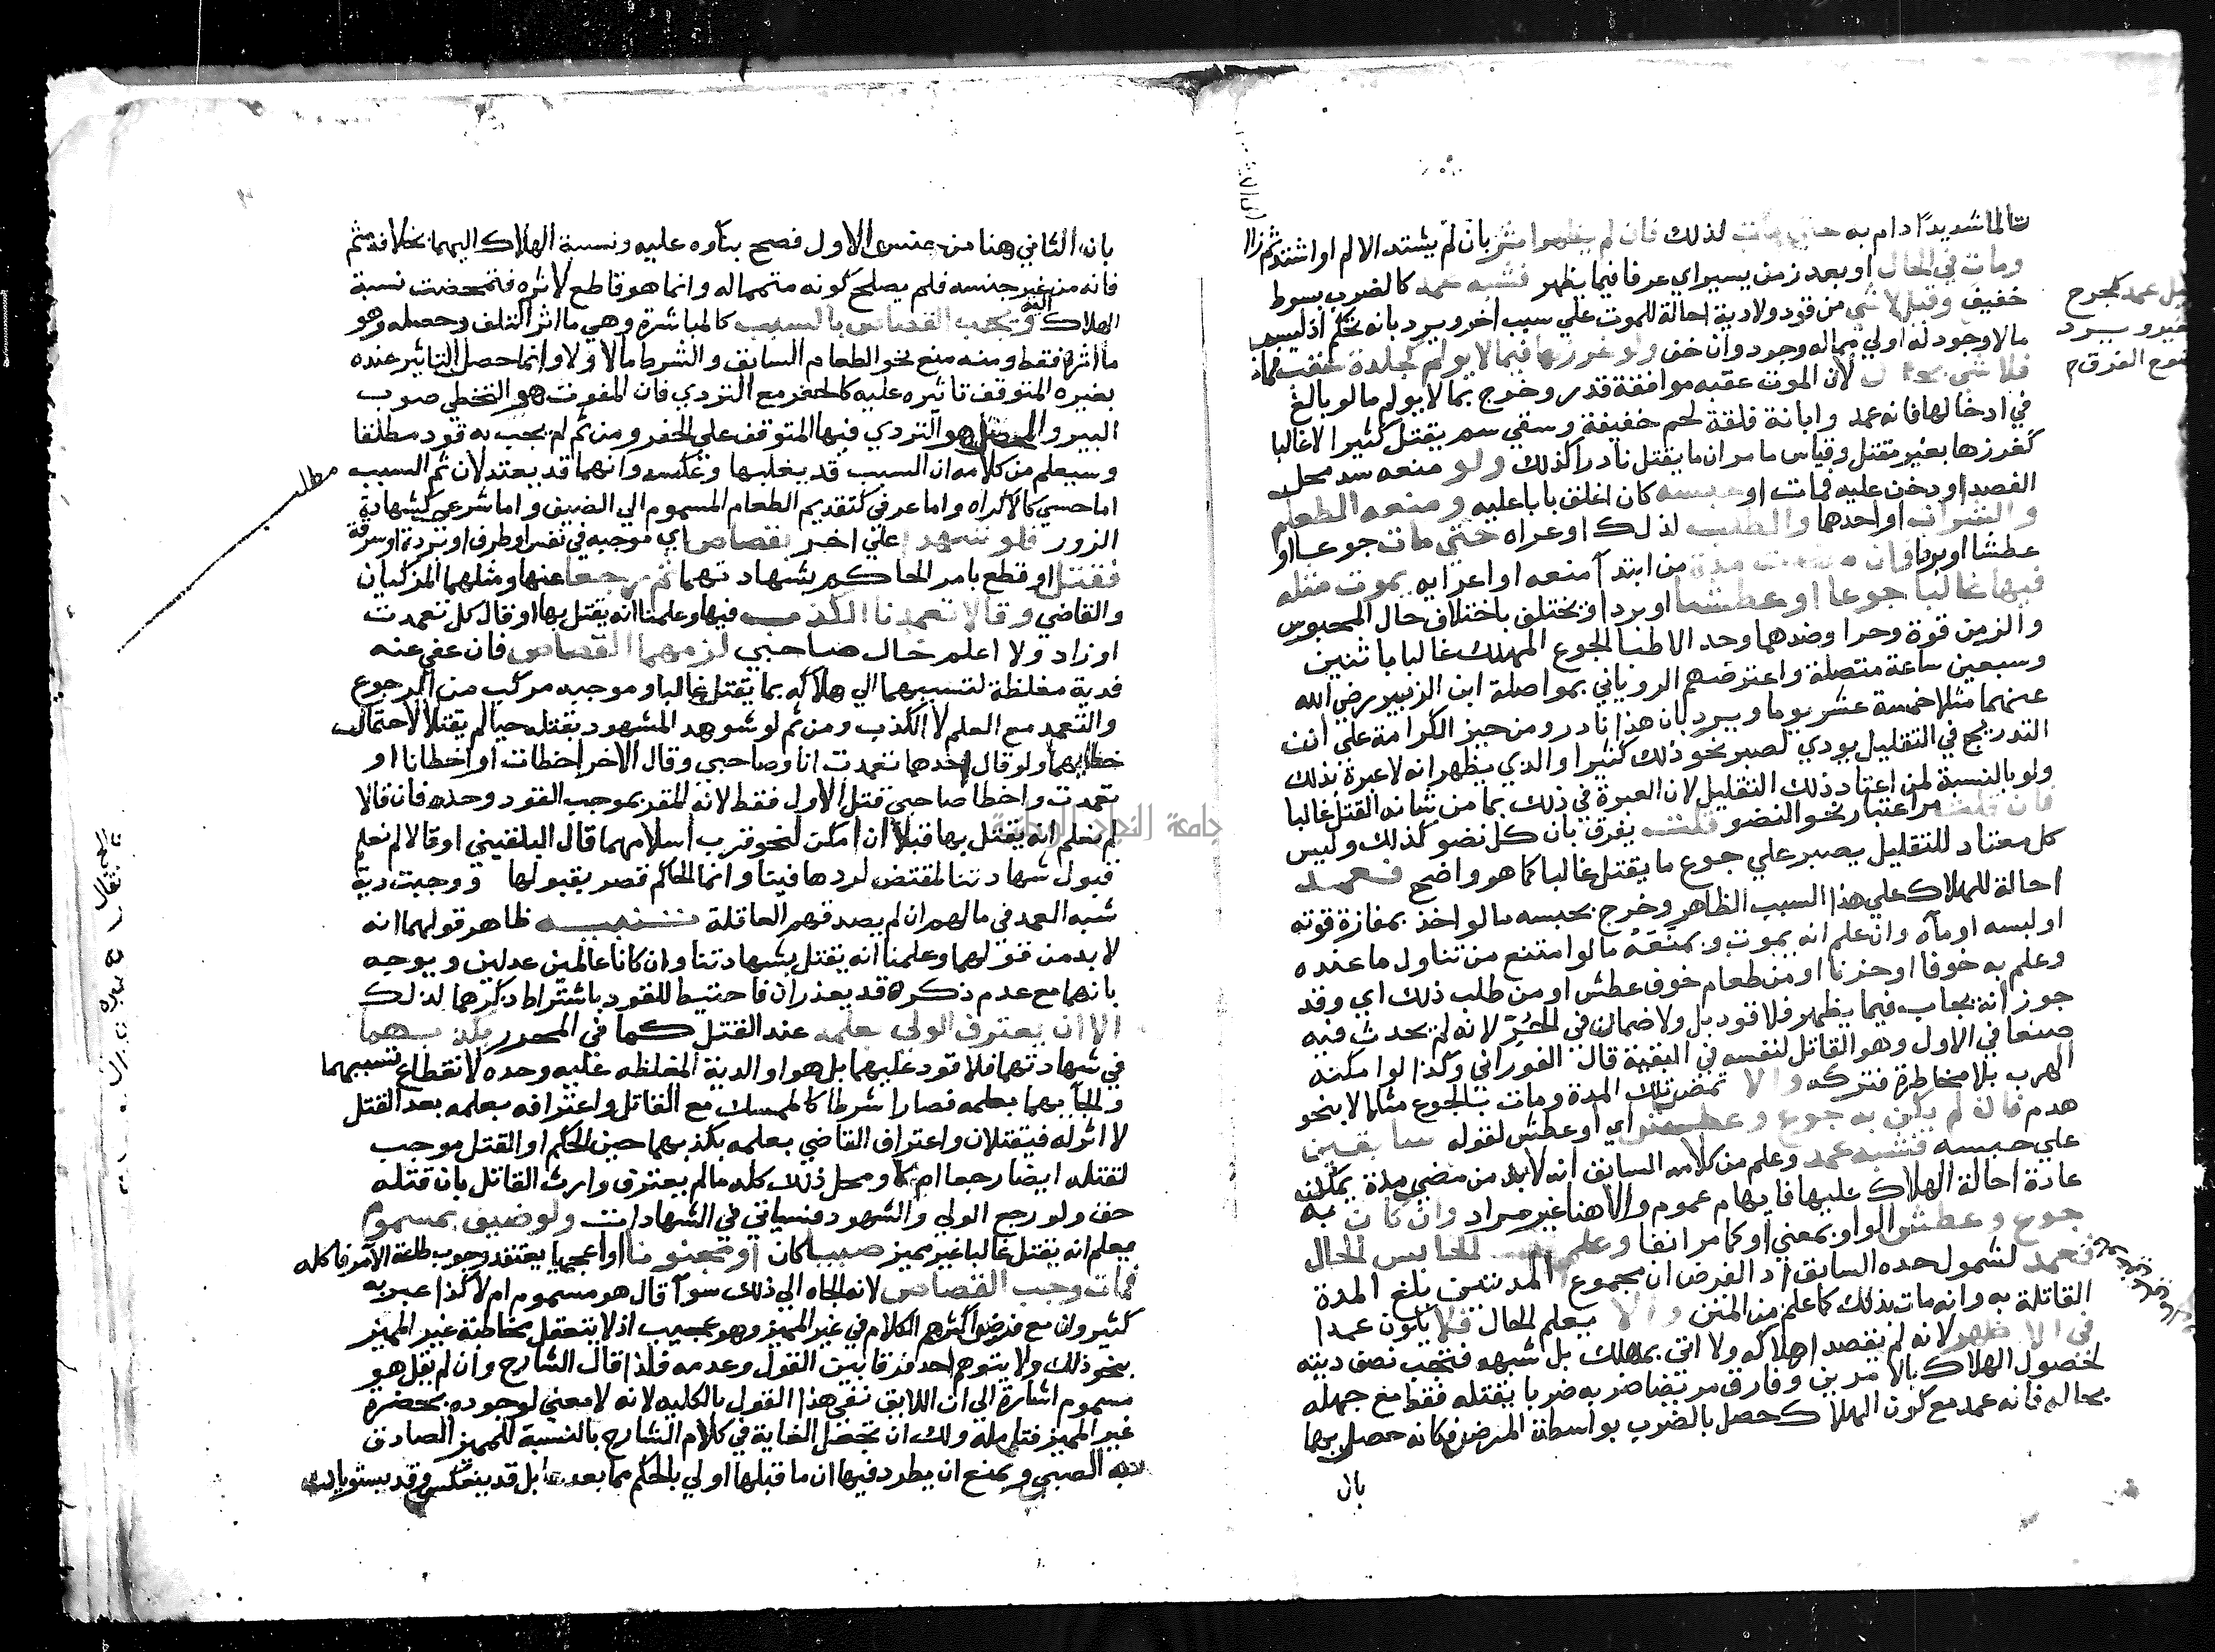 تالما شديدا دام به حتى مات لذلك فان لم يظهر اثر بان لم يشتد الالم او اشتد ثم زال
ومات في الحال او بعد زمن يسير اي عرفا فيما يظهر فشبه عمد كالضرب بسوط
خفيف وقيل لا شي من قود ولا دية احالة للموت علي سبب اخر ويرد بانه تحكم اذ ليس
ما لا وجود له اولي مما له وجود وان خف ولو غرزها فيما لا يولم كجلدة عقب فمات
فلا شي بحال لان الموت عقبه موافقة قدر وخرج بما لا يولم ما لو بالغ
في ادخالها فانه عمد وابانة فلقة لحم خفيفة وسقي سم يقتل كثيرا لا غالبا
كغرزها بغير مقتل وقياس ما مر ان ما يقتل نادرا كذلك ولو منعه سد محل
الفصد او دخن عليه فمات او حبسه كان اغلق بابا عليه ومنعه الطعام
والشراب او احدهما والطلب لذلك او عراه حتى مات جوعا او
عطشا او بردا فان مضت مدة من ابتدآ منعه او اعرايه يموت مثله
فيها غالبا جوعا او عطشا او بردا ويختلف باختلاف حال المحبوس
والزمن قوة وحرا وضدهما وحد الاطبا الجوع المهلك غالبا باثنين
وسبعين ساعة متصلة واعترضهم الروياني بمواصلة ابن الزبير رضي الله
عنهما مثلا خمسة عشر يوما ويرد بان هذا نادر ومن حيز الكرامة علي ان
التدريج في التقليل يودي لصبر نحو ذلك كثيرا والذي يظهر انه لا عبرة بذلك
ولو بالنسبة لمن اعتاد ذلك التقليل لان العبرة في ذلك بما من شانه القتل غالبا
فان قلت مر اعتبار نحو النضو قلت يفرق بان كل نضو كذلك وليس
كل معتاد للتقليل يصبر علي جوع ما يقتل غالبا كما هو واضح فعمد
احالة للهلاك علي هذا السبب الظاهر وخرج بحبسه ما لو اخذ بمفازة قوته
او لبسه او مآه وان علم انه يموت وبمنعه ما لو امتنع من تناول ما عنده
وعلم به خوفا او حزنا او من طعام خوف عطش او من طلب ذلك اي وقد
جوز انه يجاب فيما يظهر فلا قود بل ولا ضمان في الحر لانه لم يحدث فيه
صنعا في الاول وهو القاتل لنفسه في البقية قال الفوراني وكذا لو امكنه
الهرب بلا مخاطرة فتركه والا تمض تلك المدة ومات بالجوع مثلا لا بنحو
هدم فان لم يكن به جوع وعطش اي او عطش لقوله سابقين
علي حبسه فشبه عمد وعلم من كلامه السابق انه لا بد من مضي مدة يمكن
عادة احالة الهلاك عليها فايهام عموم والا هنا غير مراد وان كان به
جوع وعطش الواو بمعني او كما مر انفا وعلم الحابس الحال
فعمد لشمول حده السابق اذ الفرض ان مجموع المدتين بلغ المدة
القاتلة به وانه مات بذلك كما علم من المتن والا يعلم الحال فلا يكون عمدا
في الاظهر لانه لم يقصد اهلاكه ولا اتى بمهلك بل شبهه فتجب نصف ديته
لحصول الهلاك بالامرين وفارق مريضا ضربه ضربا يقتله فقط مع جهله
بحاله فانه عمد مع كون الهلاك حصل بالضرب بواسطة المرض فكانه حصل بهما
بان
بان الثاني هنا من جنس الاول فصح بناوه عليه ونسبة الهلاك اليهما بخلافه ثم
فانه من غير جنسه فلم يصلح كونه متمما له وانما هو قاطع لاثره فتمحضت نسبة
الهلاك اليه ويجب القصاص بالسبب كالمباشرة وهي ما اثر التلف وحصله وهو
ما اثره فقط ومنه منع نحو الطعام السابق والشرط ما لا ولا وانما حصل التاثير عنده
بغيره المتوقف تاثيره عليه كالحفر مع التردي فان المفوت هو التخطي صوب
البير والمحصل هو التردي فيها المتوقف علي الحفر ومن ثم لم يجب به قود مطلقا
وسيعلم من كلامه ان السبب قد يغلبها وعكسه وانهما قد يعتدلان ثم السبب
اما حسي كالاكراه واما عرفي كتقديم الطعام المسموم الي الضيف واما شرعي كشهادة
الزور فلو شهدا علي اخر بقصاص اي موجبه في نفس او طرف او بردة او سرقة
فقتل او قطع بامر الحاكم بشهادتهما ثم رجعا عنها ومثلهما المزكيان
والقاضي وقالا تعمدنا الكذب فيها وعلمنا انه يقتل بها او قال كل تعمدت
او زاد ولا اعلم حال صاحبي لزمهما القصاص فان عفي عنه
فدية مغلظة لتسببهما الي هلاكه بما يقتل غالبا وموجبه مركب من الرجوع
والتعمد مع العلم لا الكذب ومن ثم لو شوهد المشهود بقتله حيا لم يقتلا لاحتمال
خطايهما ولو قال احدهما تعمدت انا وصاحبي وقال الاخر اخطات او اخطانا او
تعمدت واخطا صاحبي قتل الاول فقط لانه المقر بموجب القود وحده فان قالا
لم نعلم انه يقتل بها قبلا ان امكن لنحو قرب اسلامهما قال البلقيني او قالا لم نعلم
قبول شهادتنا لمقتض لردها فينا وانما الحاكم قصر بقبولها ووجبت دية
شبه العمد في مالهم ان لم يصدقهم العاقلة تنبيه ظاهر قولهما انه
لا بد من قولهما وعلمنا انه يقتل بشهادتنا وان كانا عالمين عدلين ويوجه
بانهما مع عدم ذكره قد يعذران فاحتيط للقود باشتراط ذكرهما لذلك
الا ان يعترف الولي بعلمه عند القتل كما في المحرر بكذبهما
في شهادتهما فلا قود عليهما بل هو او الدية المغلظه عليه وحده لانقطاع تسببهما
والجآبهما بعلمه فصارا شرطا كالممسك مع القاتل واعترافه بعلمه بعد القتل
لا اثر له فيقتلان واعتراف القاضي بعلمه بكذبهما حين الحكم او القتل موجب
لقتله ايضا رجعا ام لا ومحل ذلك كله ما لم يعترف وارث القاتل بان قتله
حق ولو رجع الولي والشهود فسياتي في الشهادات ولو ضيف بمسموم
يعلم انه يقتل غالبا غير مميز صبيا كان او مجنونا او اعجميا يعتقد وجوب طاعة الآمر فاكله
فمات وجب القصاص لانه الجاه الي ذلك سوآ قال هو مسموم ام لا كذا عبر به
كثيرون مع فرض اكثرهم الكلام في غير المميز وهو عجيب اذ لا يتعقل مخاطبة غير المميز
بنحو ذلك ولا يتوهم احد فرقا بين القول وعدمه فلذا قال الشارح وان لم يقل هو
مسموم اشارة الي ان اللايق نفي هذا القول بالكليه لانه لا معني لوجوده بحضرة
غير المميز فتامله ولك ان تجعل الغاية في كلام الشارح بالنسبة للمميز الصادق
به الصبي ويمنع ان يطرد فيها ان ما قبلها اولي بالحكم مما بعدها بل قد ينعكس وقد يستويان
مطلب